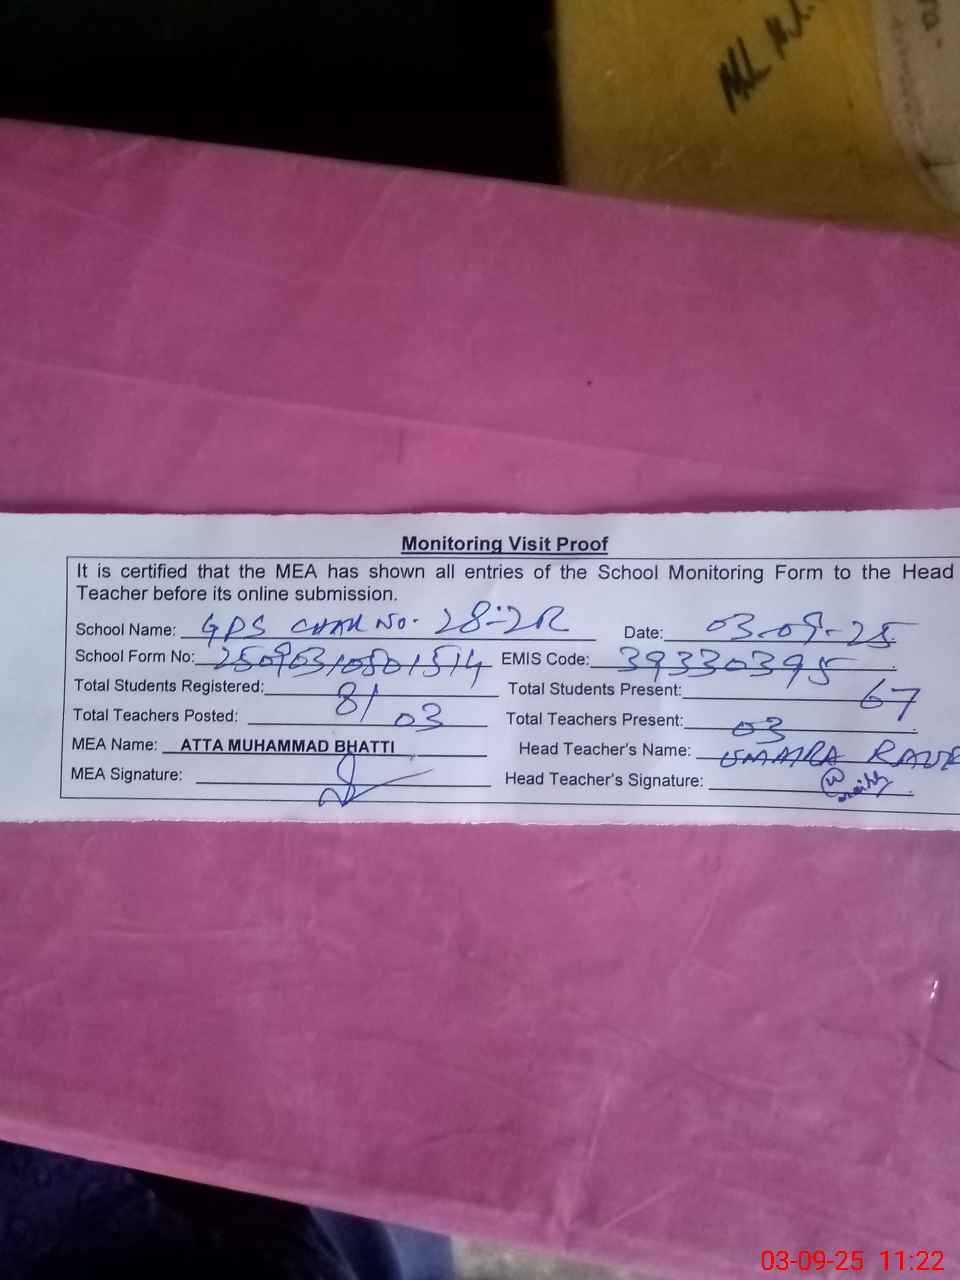 Monitoring Visit Proof
It is certified that the MEA has shown all entries of the School Monitoring Form to the Head
Teacher before its online submission.
School Name: GPS CHAK NO. 28-2R Date: 03-09-25
School Form No: 25090310801514 EMIS Code: 39330395
Total Students Registered: 81 Total Students Present: 67
Total Teachers Posted: 03 Total Teachers Present: 03
MEA Name: ATTA MUHAMMAD BHATTI Head Teacher's Name:
MEA Signature: Head Teacher's Signature:
03-09-25 11:22